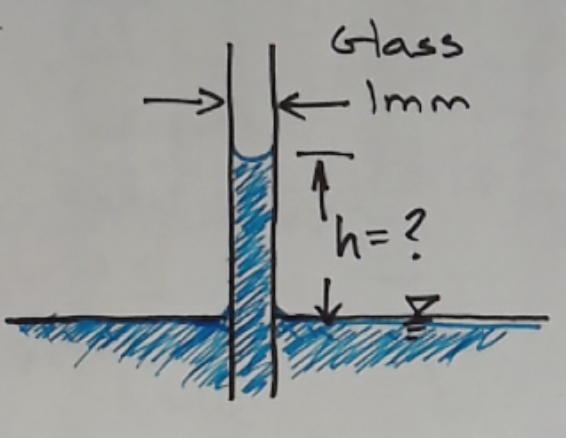 Glass
1mm
h = ?